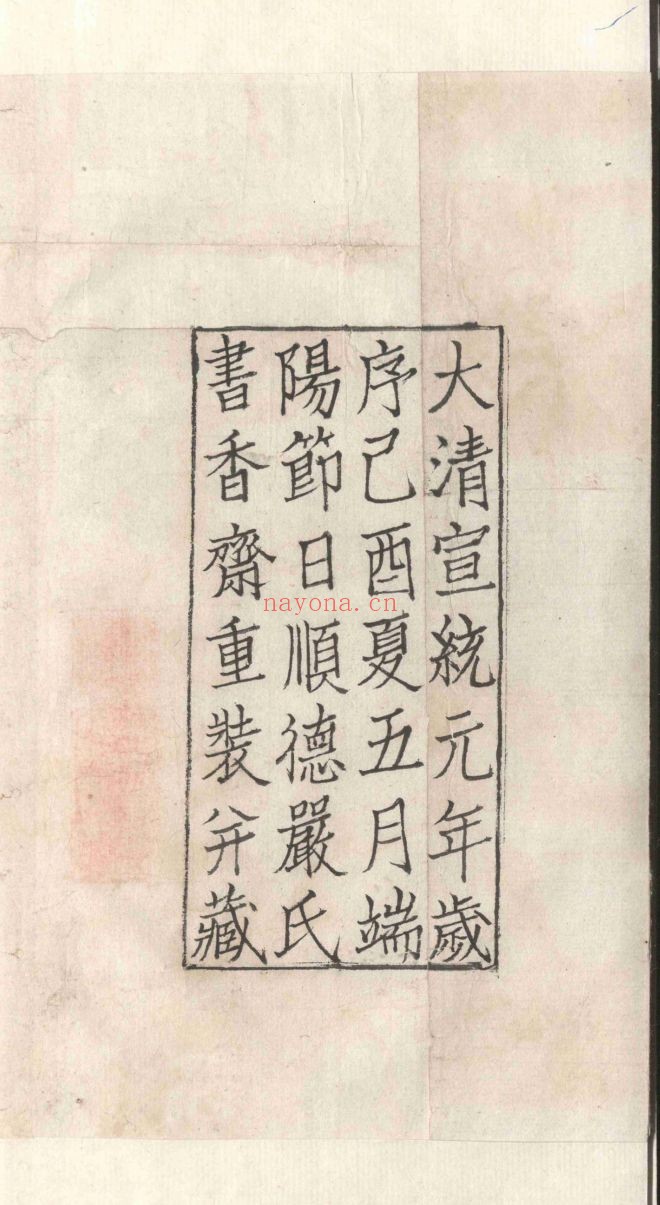 大清宣統元年歲
序己酉夏五月端
陽節日順德嚴氏
書香齋重裝弁藏
nayona.cn